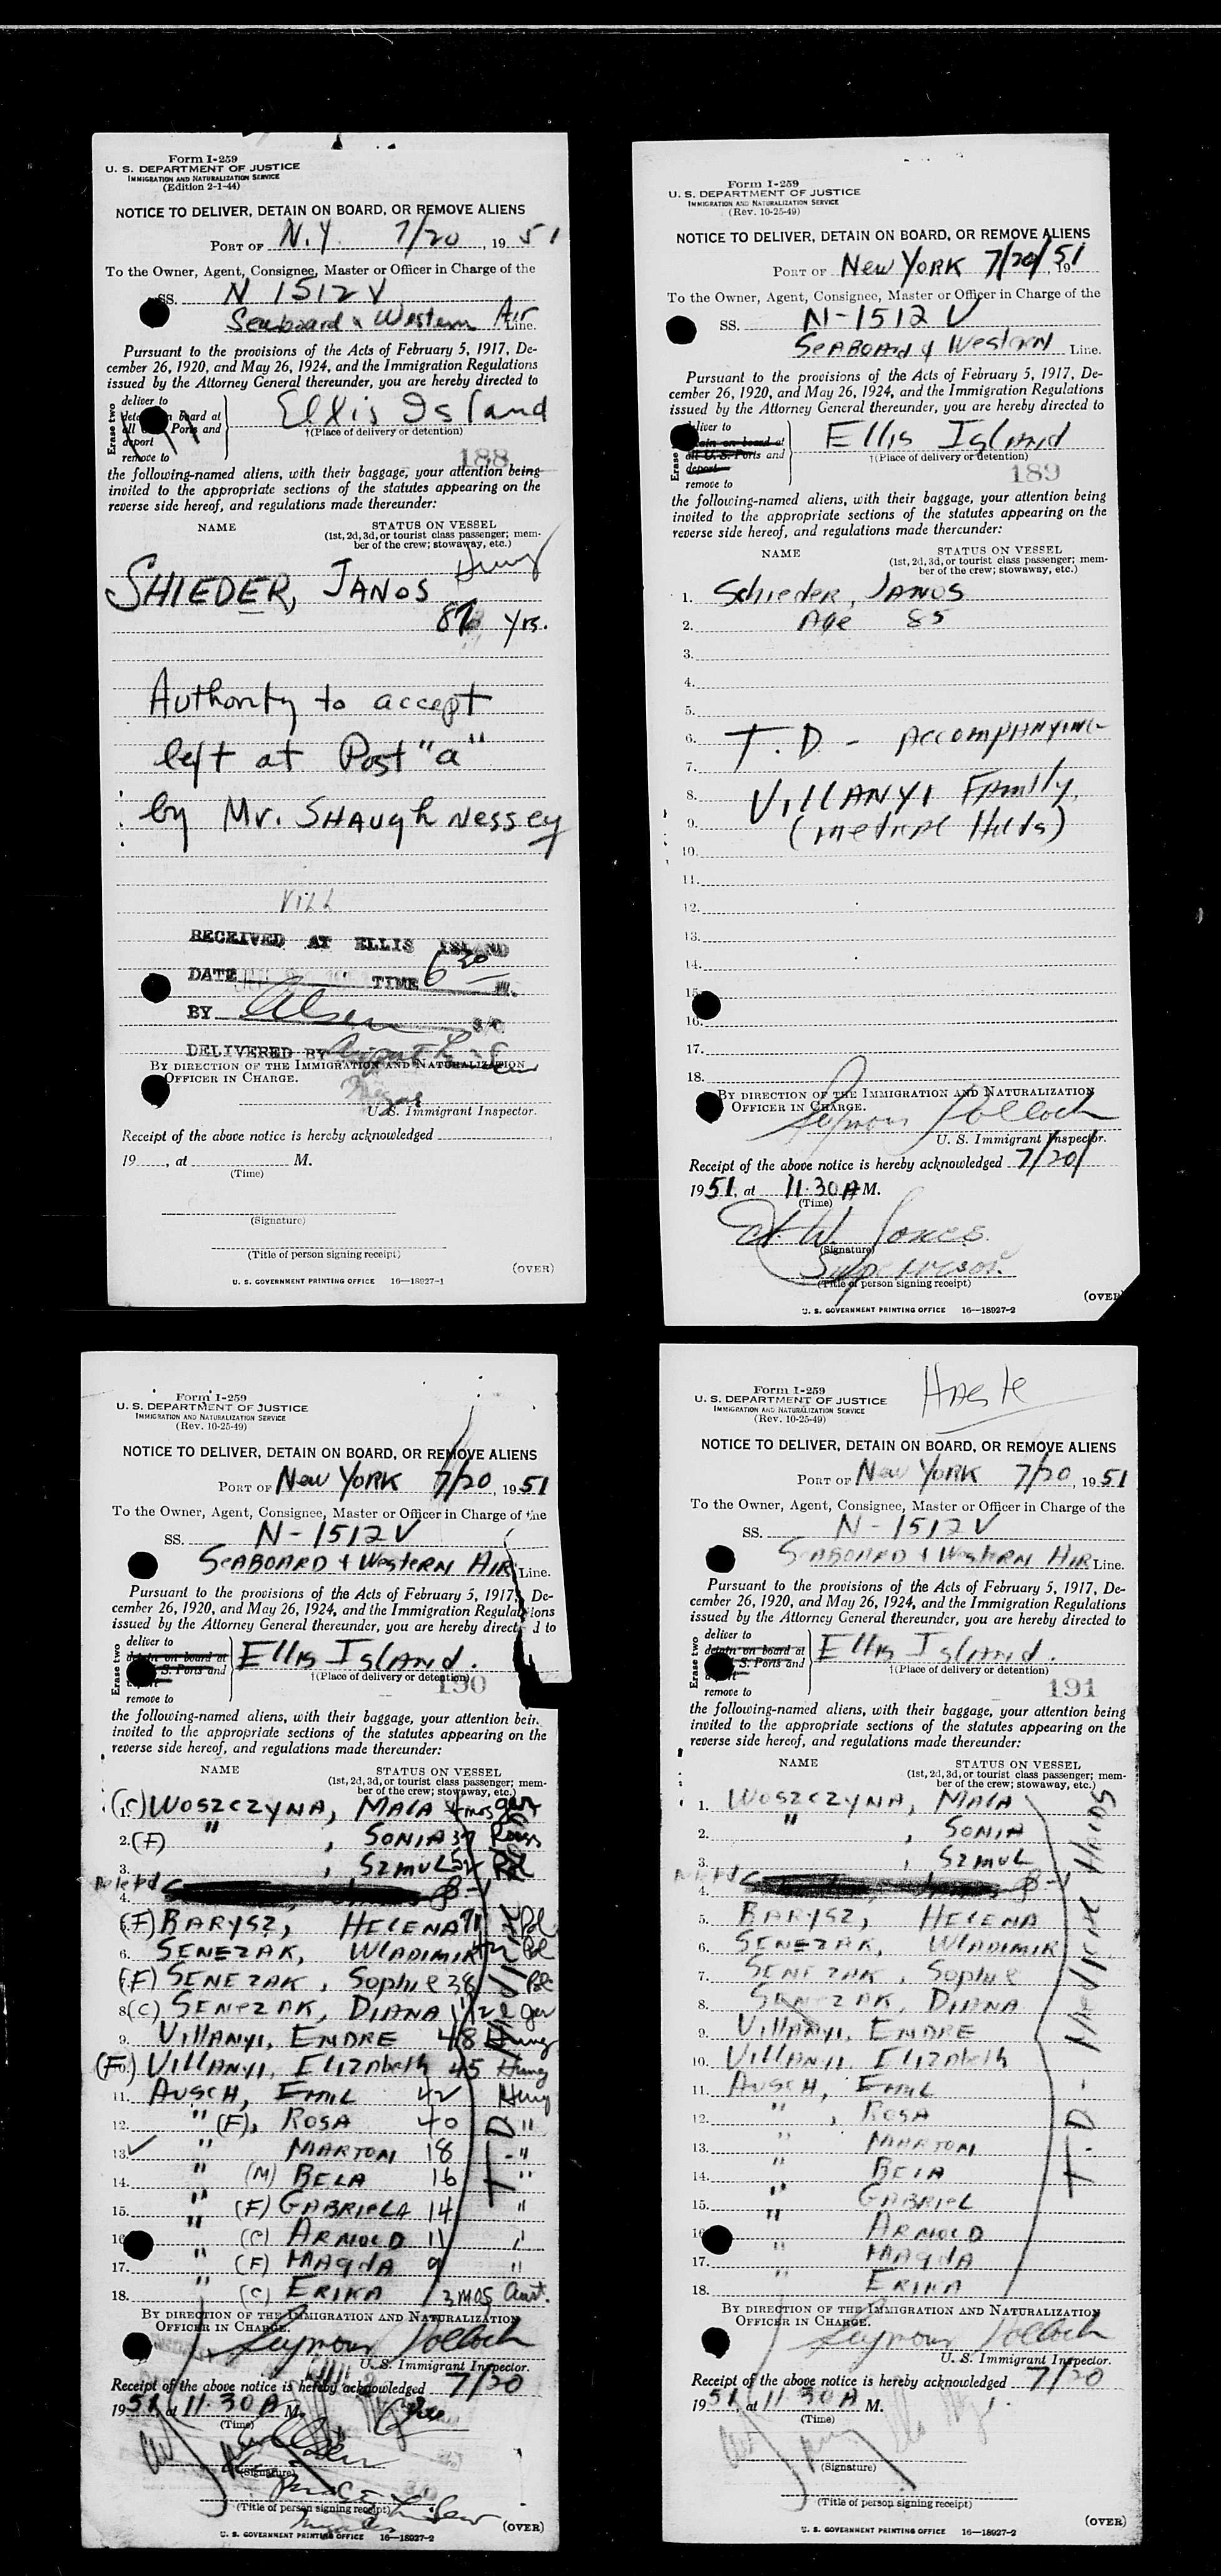 Form I-259
U. S. DEPARTMENT OF JUSTICE
IMMIGRATION AND NATURALIZATION SERVICE
(Edition 2-1-44)
NOTICE TO DELIVER, DETAIN ON BOARD, OR REMOVE ALIENS
PORT OF N.Y. 7/20, 1951
To the Owner, Agent, Consignee, Master or Officer in Charge of the
SS. N 1512 V
Seaboard & Western Air Line.
Pursuant to the provisions of the Acts of February 5, 1917, De-
cember 26, 1920, and May 26, 1924, and the Immigration Regulations
issued by the Attorney General thereunder, you are hereby directed to
Erase two
deliver to
board at
all Ports and
deport
remove to
Ellis Island
†(Place of delivery or detention)
188
the following-named aliens, with their baggage, your attention being
invited to the appropriate sections of the statutes appearing on the
reverse side hereof, and regulations made thereunder:
NAME STATUS ON VESSEL
(1st, 2d, 3d, or tourist class passenger; mem-
ber of the crew; stowaway, etc.)
Hung
SHIEDER, JANOS
yrs.
Authority to accept
left at Post "a"
by Mr. SHAUGHNESSEY
VILL
RECEIVED AT ELLIS ISLAND
DATE TIME 6 30 M.
BY
DELIVERED BY
BY DIRECTION OF THE IMMIGRATION AND NATURALIZATION
OFFICER IN CHARGE.
U. S. Immigrant Inspector.
Receipt of the above notice is hereby acknowledged
19 , at M.
(Time)
(Signature)
(Title of person signing receipt)
(OVER)
U. S. GOVERNMENT PRINTING OFFICE 16—18927-1
Form I-259
U. S. DEPARTMENT OF JUSTICE
IMMIGRATION AND NATURALIZATION SERVICE
(Rev. 10-25-49)
NOTICE TO DELIVER, DETAIN ON BOARD, OR REMOVE ALIENS
PORT OF New YORK 7/20/51, 19
To the Owner, Agent, Consignee, Master or Officer in Charge of the
SS. N-1512 V
SEABOARD & Western Line.
Pursuant to the provisions of the Acts of February 5, 1917, De-
cember 26, 1920, and May 26, 1924, and the Immigration Regulations
issued by the Attorney General thereunder, you are hereby directed to
Erase
deliver to
detain on board at
all U. S. Ports and
deport
remove to
Ellis Island
†(Place of delivery or detention)
189
the following-named aliens, with their baggage, your attention being
invited to the appropriate sections of the statutes appearing on the
reverse side hereof, and regulations made thereunder:
NAME STATUS ON VESSEL
(1st, 2d, 3d, or tourist class passenger; mem-
ber of the crew; stowaway, etc.)
1. Schieder, JANOS
2. Age 85
3.
4.
5.
6. T.D - ACCOMPANYING
7.
8. VILLANYI FAMILY
9. (medical Holds)
10.
11.
12.
13.
14.
15.
16.
17.
18.
BY DIRECTION OF THE IMMIGRATION AND NATURALIZATION
OFFICER IN CHARGE.
Seymour Pollock
U. S. Immigrant Inspector.
Receipt of the above notice is hereby acknowledged 7/20/
1951, at 11:30 A M.
(Time)
W. Jones
(Signature)
Supervisor
(Title of person signing receipt)
(OVER)
U. S. GOVERNMENT PRINTING OFFICE 16—18927-2
Form I-259
U. S. DEPARTMENT OF JUSTICE
IMMIGRATION AND NATURALIZATION SERVICE
(Rev. 10-25-49)
NOTICE TO DELIVER, DETAIN ON BOARD, OR REMOVE ALIENS
PORT OF New YORK 7/20, 1951
To the Owner, Agent, Consignee, Master or Officer in Charge of the
SS. N-1512 V
SEABOARD & Western AIR Line.
Pursuant to the provisions of the Acts of February 5, 1917, De-
cember 26, 1920, and May 26, 1924, and the Immigration Regulations
issued by the Attorney General thereunder, you are hereby directed to
Erase two
deliver to
detain on board at
S. Ports and
remove to
Ellis Island.
†(Place of delivery or detention)
190
the following-named aliens, with their baggage, your attention bein
invited to the appropriate sections of the statutes appearing on the
reverse side hereof, and regulations made thereunder:
NAME STATUS ON VESSEL
(1st, 2d, 3d, or tourist class passenger; mem-
ber of the crew; stowaway, etc.)
1. (C) WOSZCZYNA, MALA 4 mos ger
2. (F) " , SONIA 37 Russ
3. , SZMUL 52 Pol
4.
(F) BARYSZ, HELENA 71 Pol
6. SENEZAK, WLADIMIR 42 Pol
(F) SENEZAK, Sophie 38 Pol
8. (C) SENEZAK, DIANA 1 1/2 ger
9. VILLANYI, ENDRE 48 Hung
(F) VILLANYI, ELIZAbeth 45 Hung
11. AUSCH, EMIL 42 Hung
12. " (F), ROSA 40 "
13. ✓ " MARTON 18 "
14. " (M) BELA 16 "
15. " (F) GABRIELA 14 "
16. " (C) ARNOLD 11 "
17. " (F) MAGDA 9 "
18. " (C) ERIKA 3 MOS Aust.
T D
BY DIRECTION OF THE IMMIGRATION AND NATURALIZATION
OFFICER IN CHARGE.
Seymour Pollock
U. S. Immigrant Inspector.
Receipt of the above notice is hereby acknowledged 7/20
1951, at 11:30 A M.
(Time)
(Signature)
(Title of person signing receipt)
(OVER)
U. S. GOVERNMENT PRINTING OFFICE 16—18927-2
HASte
Form I-259
U. S. DEPARTMENT OF JUSTICE
IMMIGRATION AND NATURALIZATION SERVICE
(Rev. 10-25-49)
NOTICE TO DELIVER, DETAIN ON BOARD, OR REMOVE ALIENS
PORT OF New YORK 7/20, 1951
To the Owner, Agent, Consignee, Master or Officer in Charge of the
SS. N-1512 V
SEABOARD & Western AIR Line.
Pursuant to the provisions of the Acts of February 5, 1917, De-
cember 26, 1920, and May 26, 1924, and the Immigration Regulations
issued by the Attorney General thereunder, you are hereby directed to
Erase two
deliver to
detain on board at
S. Ports and
remove to
Ellis Island.
†(Place of delivery or detention)
191
the following-named aliens, with their baggage, your attention being
invited to the appropriate sections of the statutes appearing on the
reverse side hereof, and regulations made thereunder:
NAME STATUS ON VESSEL
(1st, 2d, 3d, or tourist class passenger; mem-
ber of the crew; stowaway, etc.)
1. WOSZCZYNA, MALA
2. " , SONIA
3. , SZMUL
4.
5. BARYSZ, HELENA
6. SENEZAK, WLADIMIR
7. SENEZAK, Sophie
8. SENEZAK, DIANA
9. VILLANYI, ENDRE
10. VILLANYI, ELIZAbeth
11. AUSCH, EMIL
12. " , ROSA
13. " MARTON
14. " BELA
15. " GABRIEL
16. " ARNOLD
17. " MAGDA
18. " ERIKA
T.D - Medical Holds
BY DIRECTION OF THE IMMIGRATION AND NATURALIZATION
OFFICER IN CHARGE.
Seymour Pollock
U. S. Immigrant Inspector.
Receipt of the above notice is hereby acknowledged 7/20
1951, at 11:30 A M.
(Time)
(Signature)
(Title of person signing receipt)
(OVER)
U. S. GOVERNMENT PRINTING OFFICE 16—18927-2